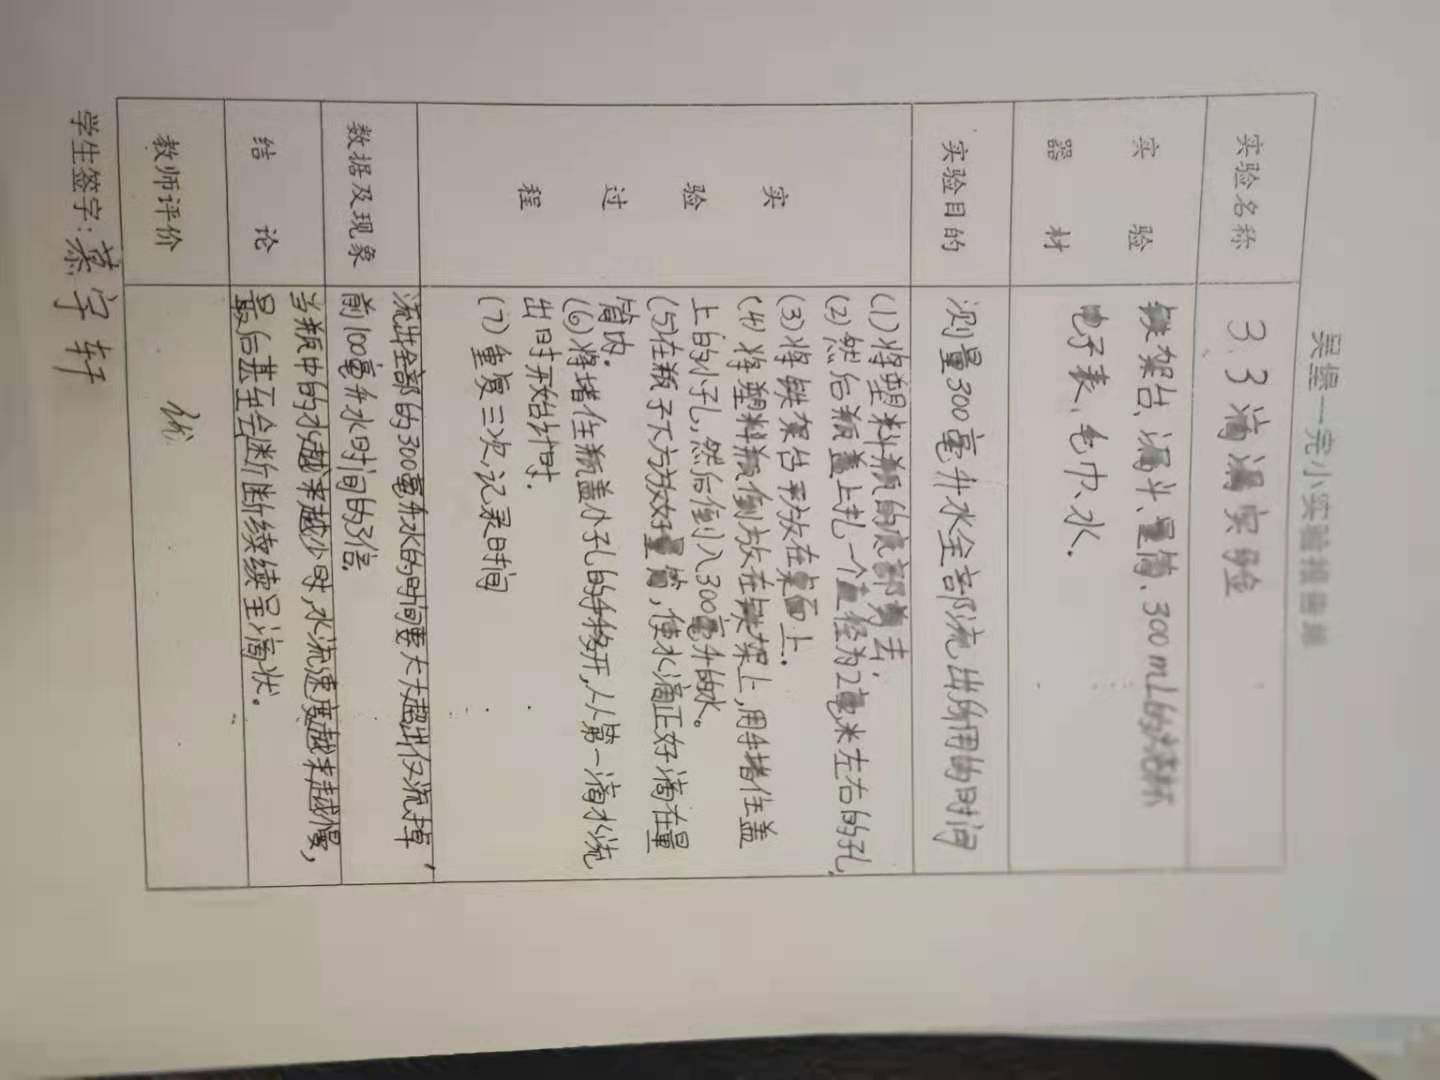 吴堡一完小实验报告单
实验名称 3.3滴漏实验
实验器材 铁架台、漏斗、量筒、300mL的烧杯
电子表、毛巾、水.
实验目的 测量300毫升水全部流出所用的时间
实验过程 (1)将塑料瓶的底部剪去.
(2)然后瓶盖上扎一个直径为2毫米左右的孔.
(3)将铁架台平放在桌面上.
(4)将塑料瓶倒放在铁架上,用手堵住盖
上的小孔,然后倒入300毫升的水。
(5)在瓶子下方放好量筒,使水滴正好滴在量
筒内.
(6)将堵住瓶盖小孔的手移开,从第一滴水流
出时开始计时.
(7)重复三次,记录时间
数据及现象 流出全部的300毫升水的时间要大大超出仅流掉,
前100毫升水时间的3倍.
结论 当瓶中的水越来越少时,水流速度越来越慢,
最后甚至会断断续续呈滴状.
教师评价 优
学生签字:慕宇轩